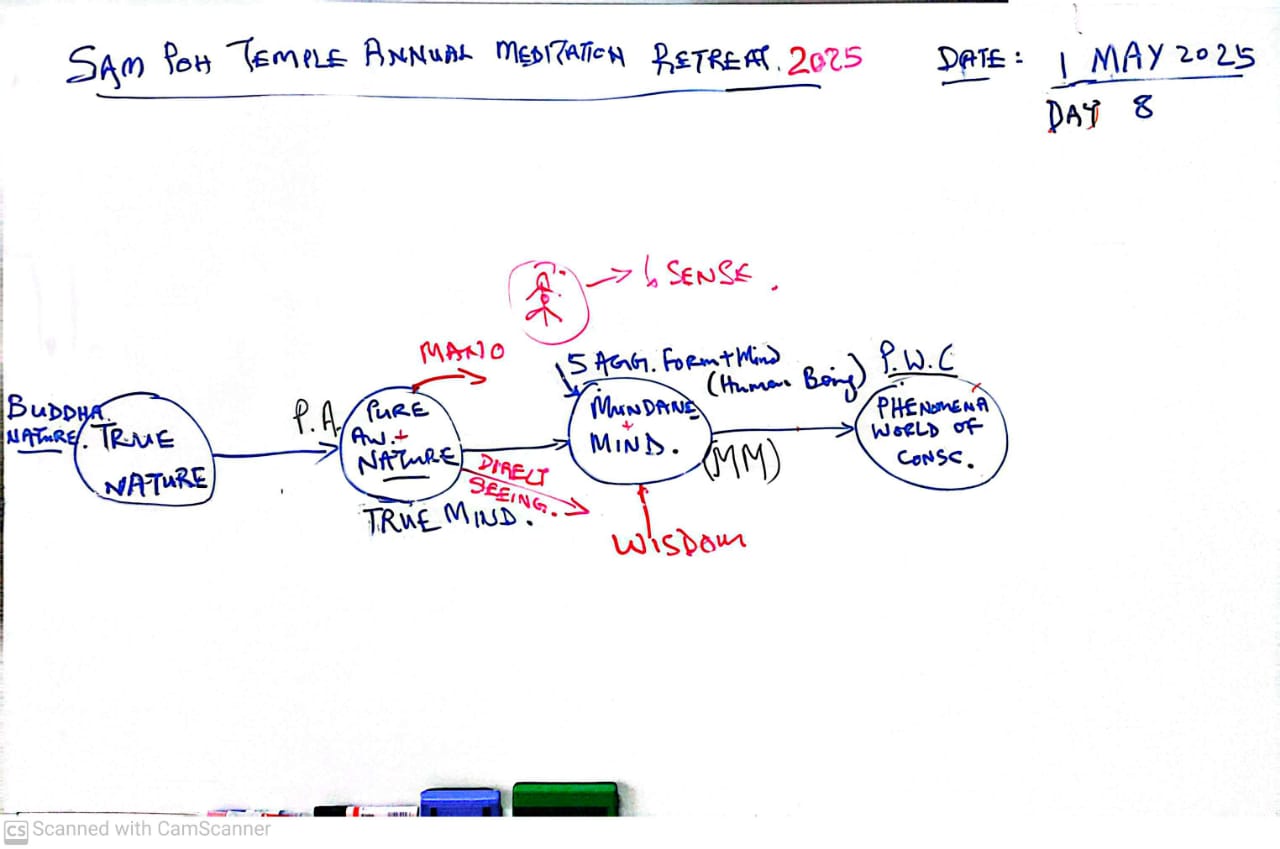 SAM POH TEMPLE ANNUAL MEDITATION RETREAT. 2025
DATE: 1 MAY 2025
DAY 8
6 SENSE.
MANO
5 AGG. FORM + MIND
(Human Being)
P.W.C
BUDDHA
NATURE.
TRUE
NATURE
P.A.
PURE
AW. +
NATURE
TRUE MIND.
DIRECT
SEEING.
MUNDANE
+
MIND.
(MM)
WISDOM
PHENOMENA
WORLD OF
CONSC.
CS Scanned with CamScanner